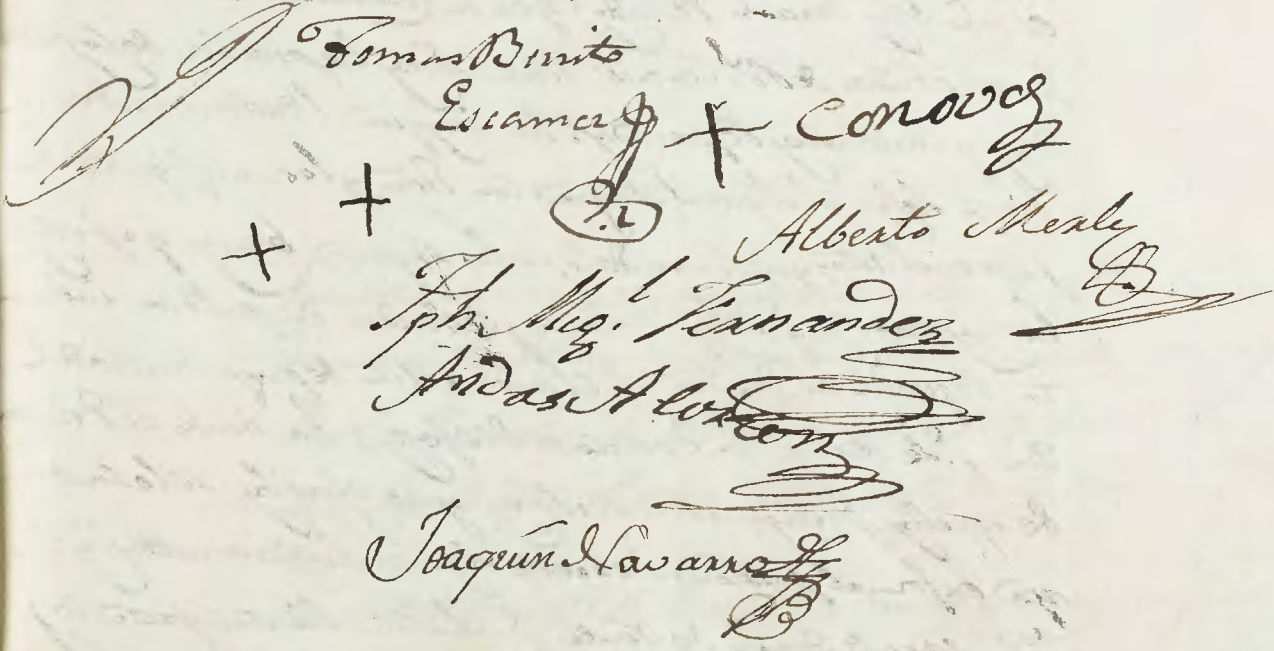 Tomas Benito
Escamez
+ Conovez
+ +
Alberto Merlo
Jph. Mig.l Fernandez
Andas Alorzon
Joaquin Navarro